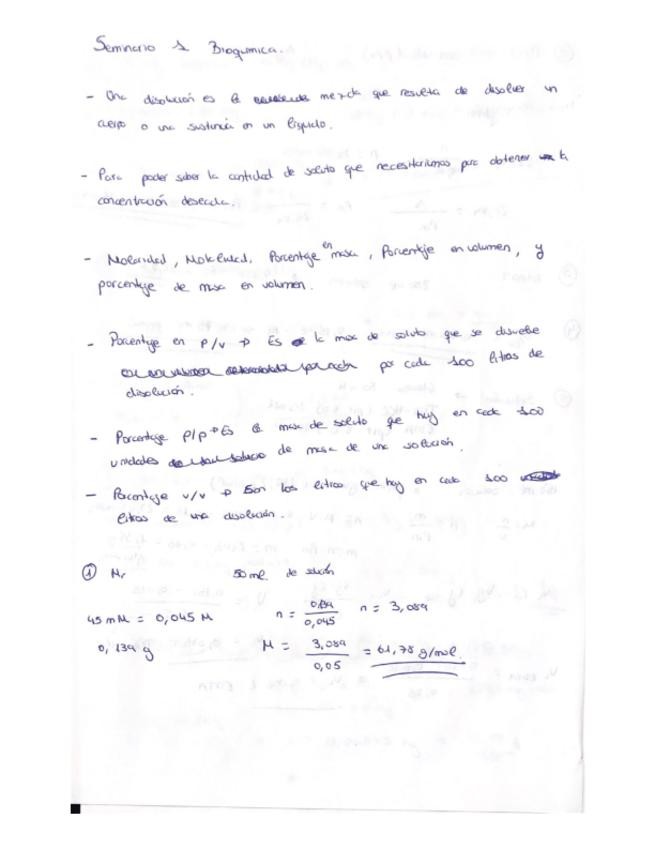 Seminario 1 Bioquimica.
- Una disolución es la mezcla que resulta de disolver un
cuerpo o una sustancia en un líquido.
- Para poder saber la cantidad de soluto que necesitaríamos para obtener la
concentración deseada.
- Molaridad, Molalidad, Porcentaje en masa, Porcentaje en volumen, y
porcentaje de masa en volumen.
- Porcentaje en p/v → Es la masa de soluto que se disuelve
por cada 100 litros de
disolución.
- Porcentaje p/p → Es la masa de soluto que hay en cada 100
unidades de masa de una solución.
- Porcentaje v/v → Son los litros que hay en cada 100
litros de una disolución.
① Mr 50 ml de solución
45 mM = 0,045 M n = 0,139 / 0,045 n = 3,089
0,139 g M = 3,089 / 0,05 = 61,78 g/mol.